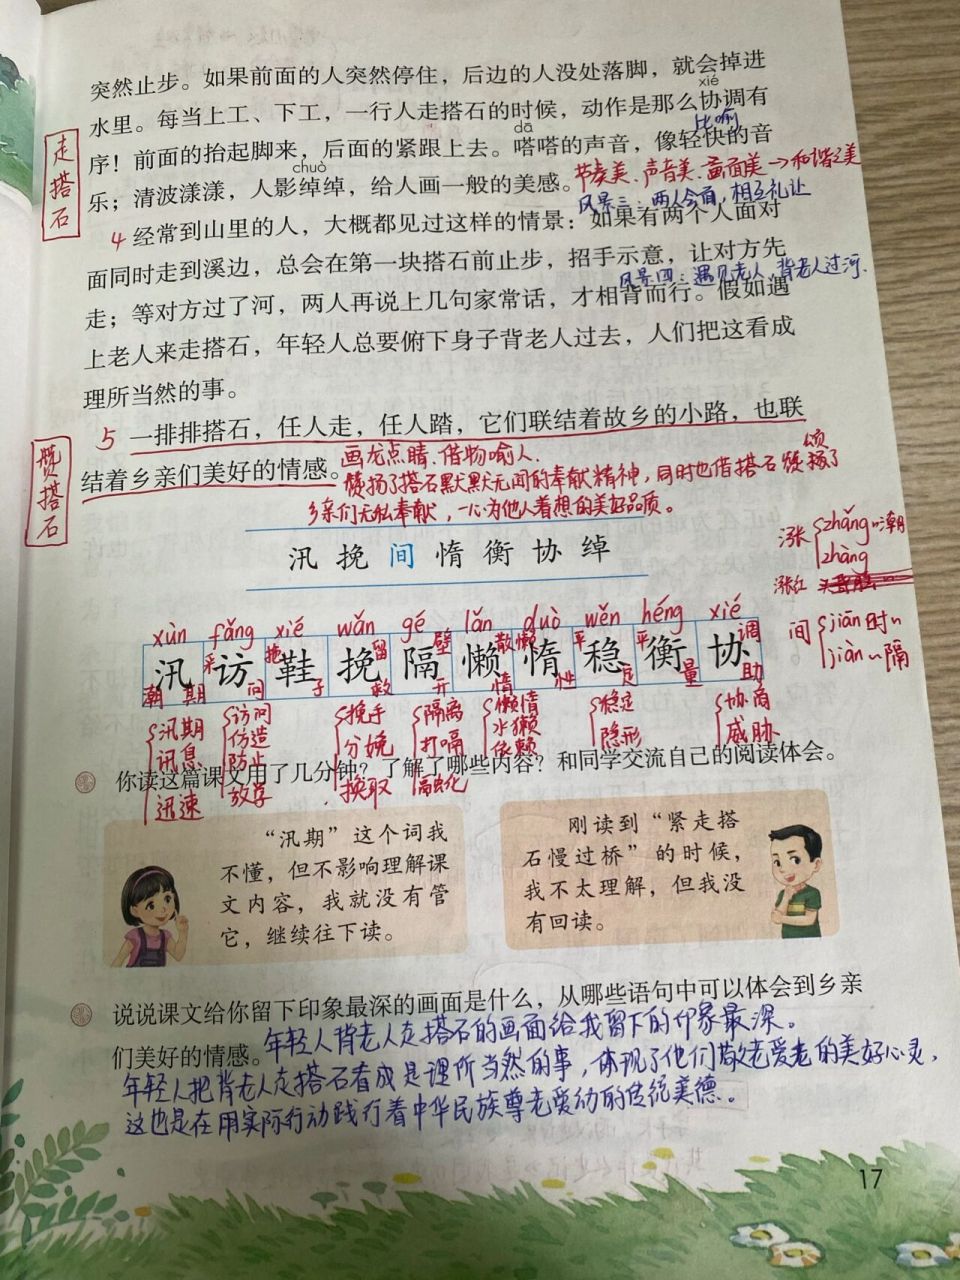 突然止步。如果前面的人突然停住，后边的人没处落脚，就会掉进
xié
水里。每当上工、下工，一行人走搭石的时候，动作是那么协调有
dā
比喻
序！前面的抬起脚来，后面的紧跟上去。嗒嗒的声音，像轻快的音
chuò
乐；清波漾漾，人影绰绰，给人画一般的美感。
节奏美、声音美、画面美→和谐之美
走搭石
风景三：两人令面，相互礼让
4 经常到山里的人，大概都见过这样的情景：如果有两个人面对
面同时走到溪边，总会在第一块搭石前止步，招手示意，让对方先
风景四：遇见老人，背老人过河.
走；等对方过了河，两人再说上几句家常话，才相背而行。假如遇
上老人来走搭石，年轻人总要俯下身子背老人过去，人们把这看成
理所当然的事。
5 一排排搭石，任人走，任人踏，它们联结着故乡的小路，也联
结着乡亲们美好的情感。
赞搭石
画龙点睛、借物喻人.
赞扬了搭石默默无闻的奉献精神，同时也借搭石颂扬了
乡亲们无私奉献，一心为他人着想的美好品质。
汛 挽 间 惰 衡 协 绰
涨 zhǎng ~潮
zhàng
涨红
间 jiān 时~
jiàn ~隔
xùn fǎng xié wǎn gé lǎn duò wěn héng xié
汛 访 鞋 挽 隔 懒 惰 稳 衡 协
潮 期 采 问 拖 子 留 救 壁 开 散 惰 懒 性 平 定 平 量 调 助
汛期 访问 挽手 隔离 懒惰 稳定 协商
讯息 仿造 分娩 打嗝 水獭 隐形 威胁
迅速 防止 换取 融化 依赖
放学
你读这篇课文用了几分钟？了解了哪些内容？和同学交流自己的阅读体会。
“汛期”这个词我
不懂，但不影响理解课
文内容，我就没有管
它，继续往下读。
刚读到“紧走搭
石慢过桥”的时候，
我不太理解，但我没
有回读。
说说课文给你留下印象最深的画面是什么，从哪些语句中可以体会到乡亲
们美好的情感。
年轻人背老人走搭石的画面给我留下的印象最深。
年轻人把背老人走搭石看成是理所当然的事，体现了他们敬老爱老的美好心灵，
这也是在用实际行动践行着中华民族尊老爱幼的传统美德。
17